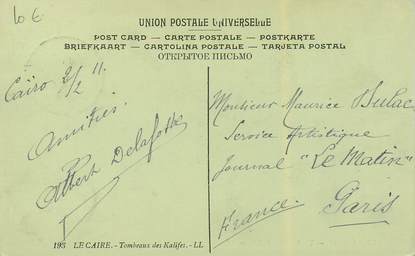 10 €
UNION POSTALE UNIVERSELLE
POST CARD — CARTE POSTALE — POSTKARTE
BRIEFKAART — CARTOLINA POSTALE — TARJETA POSTAL
ОТКРЫТОЕ ПИСЬМО
Caïro 2/2 11.
Amitiés.
Albert
Monsieur Maurice
Service Artistique
Journal "Le Matin"
Paris
France.
193 LE CAIRE. - Tombeaux des Kalifes. - LL